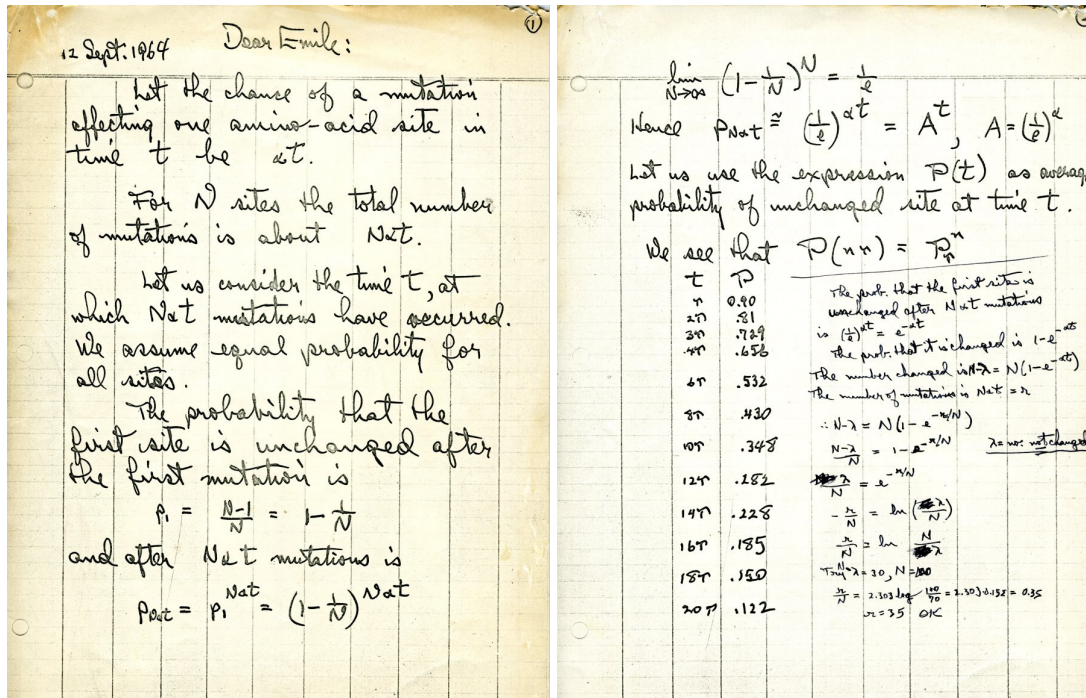 ①
12 Sept. 1964 Dear Emile:
Let the chance of a mutation
affecting one amino-acid site in
time t be αt.
For N sites the total number
of mutations is about Nαt.
Let us consider the time t, at
which Nαt mutations have occurred.
We assume equal probability for
all sites.
The probability that the
first site is unchanged after
the first mutation is
p₁ = (N-1)/N = 1 - 1/N
and after Nαt mutations is
p_Nαt = p₁^Nαt = (1 - 1/N)^Nαt
lim N→∞ (1 - 1/N)^N = 1/e
Hence p_Nαt ≅ (1/e)^αt = A^t, A = (1/e)^α
Let us use the expression P(t) as average
probability of unchanged site at time t.
We see that P(nτ) = P_τ^n
t P
τ 0.90
2τ .81
3τ .729
4τ .656
6τ .532
8τ .430
10τ .348
12τ .282
14τ .228
16τ .185
18τ .150
20τ .122
The prob. that the first site is
unchanged after Nαt mutations
is (1/e)^αt = e^-αt
The prob. that it is changed is 1-e^-αt
The number changed is N-λ = N(1-e^-αt)
The number of mutations is Nαt = r
∴ N-λ = N(1-e^-r/N)
(N-λ)/N = 1-e^-r/N λ = no. not changed
λ/N = e^-r/N
-r/N = ln (λ/N)
r/N = ln N/λ
Try N-λ = 30, N = 100
r/N = 2.303 log 100/70 = 2.303 · 0.152 = 0.35
r = 35 OK